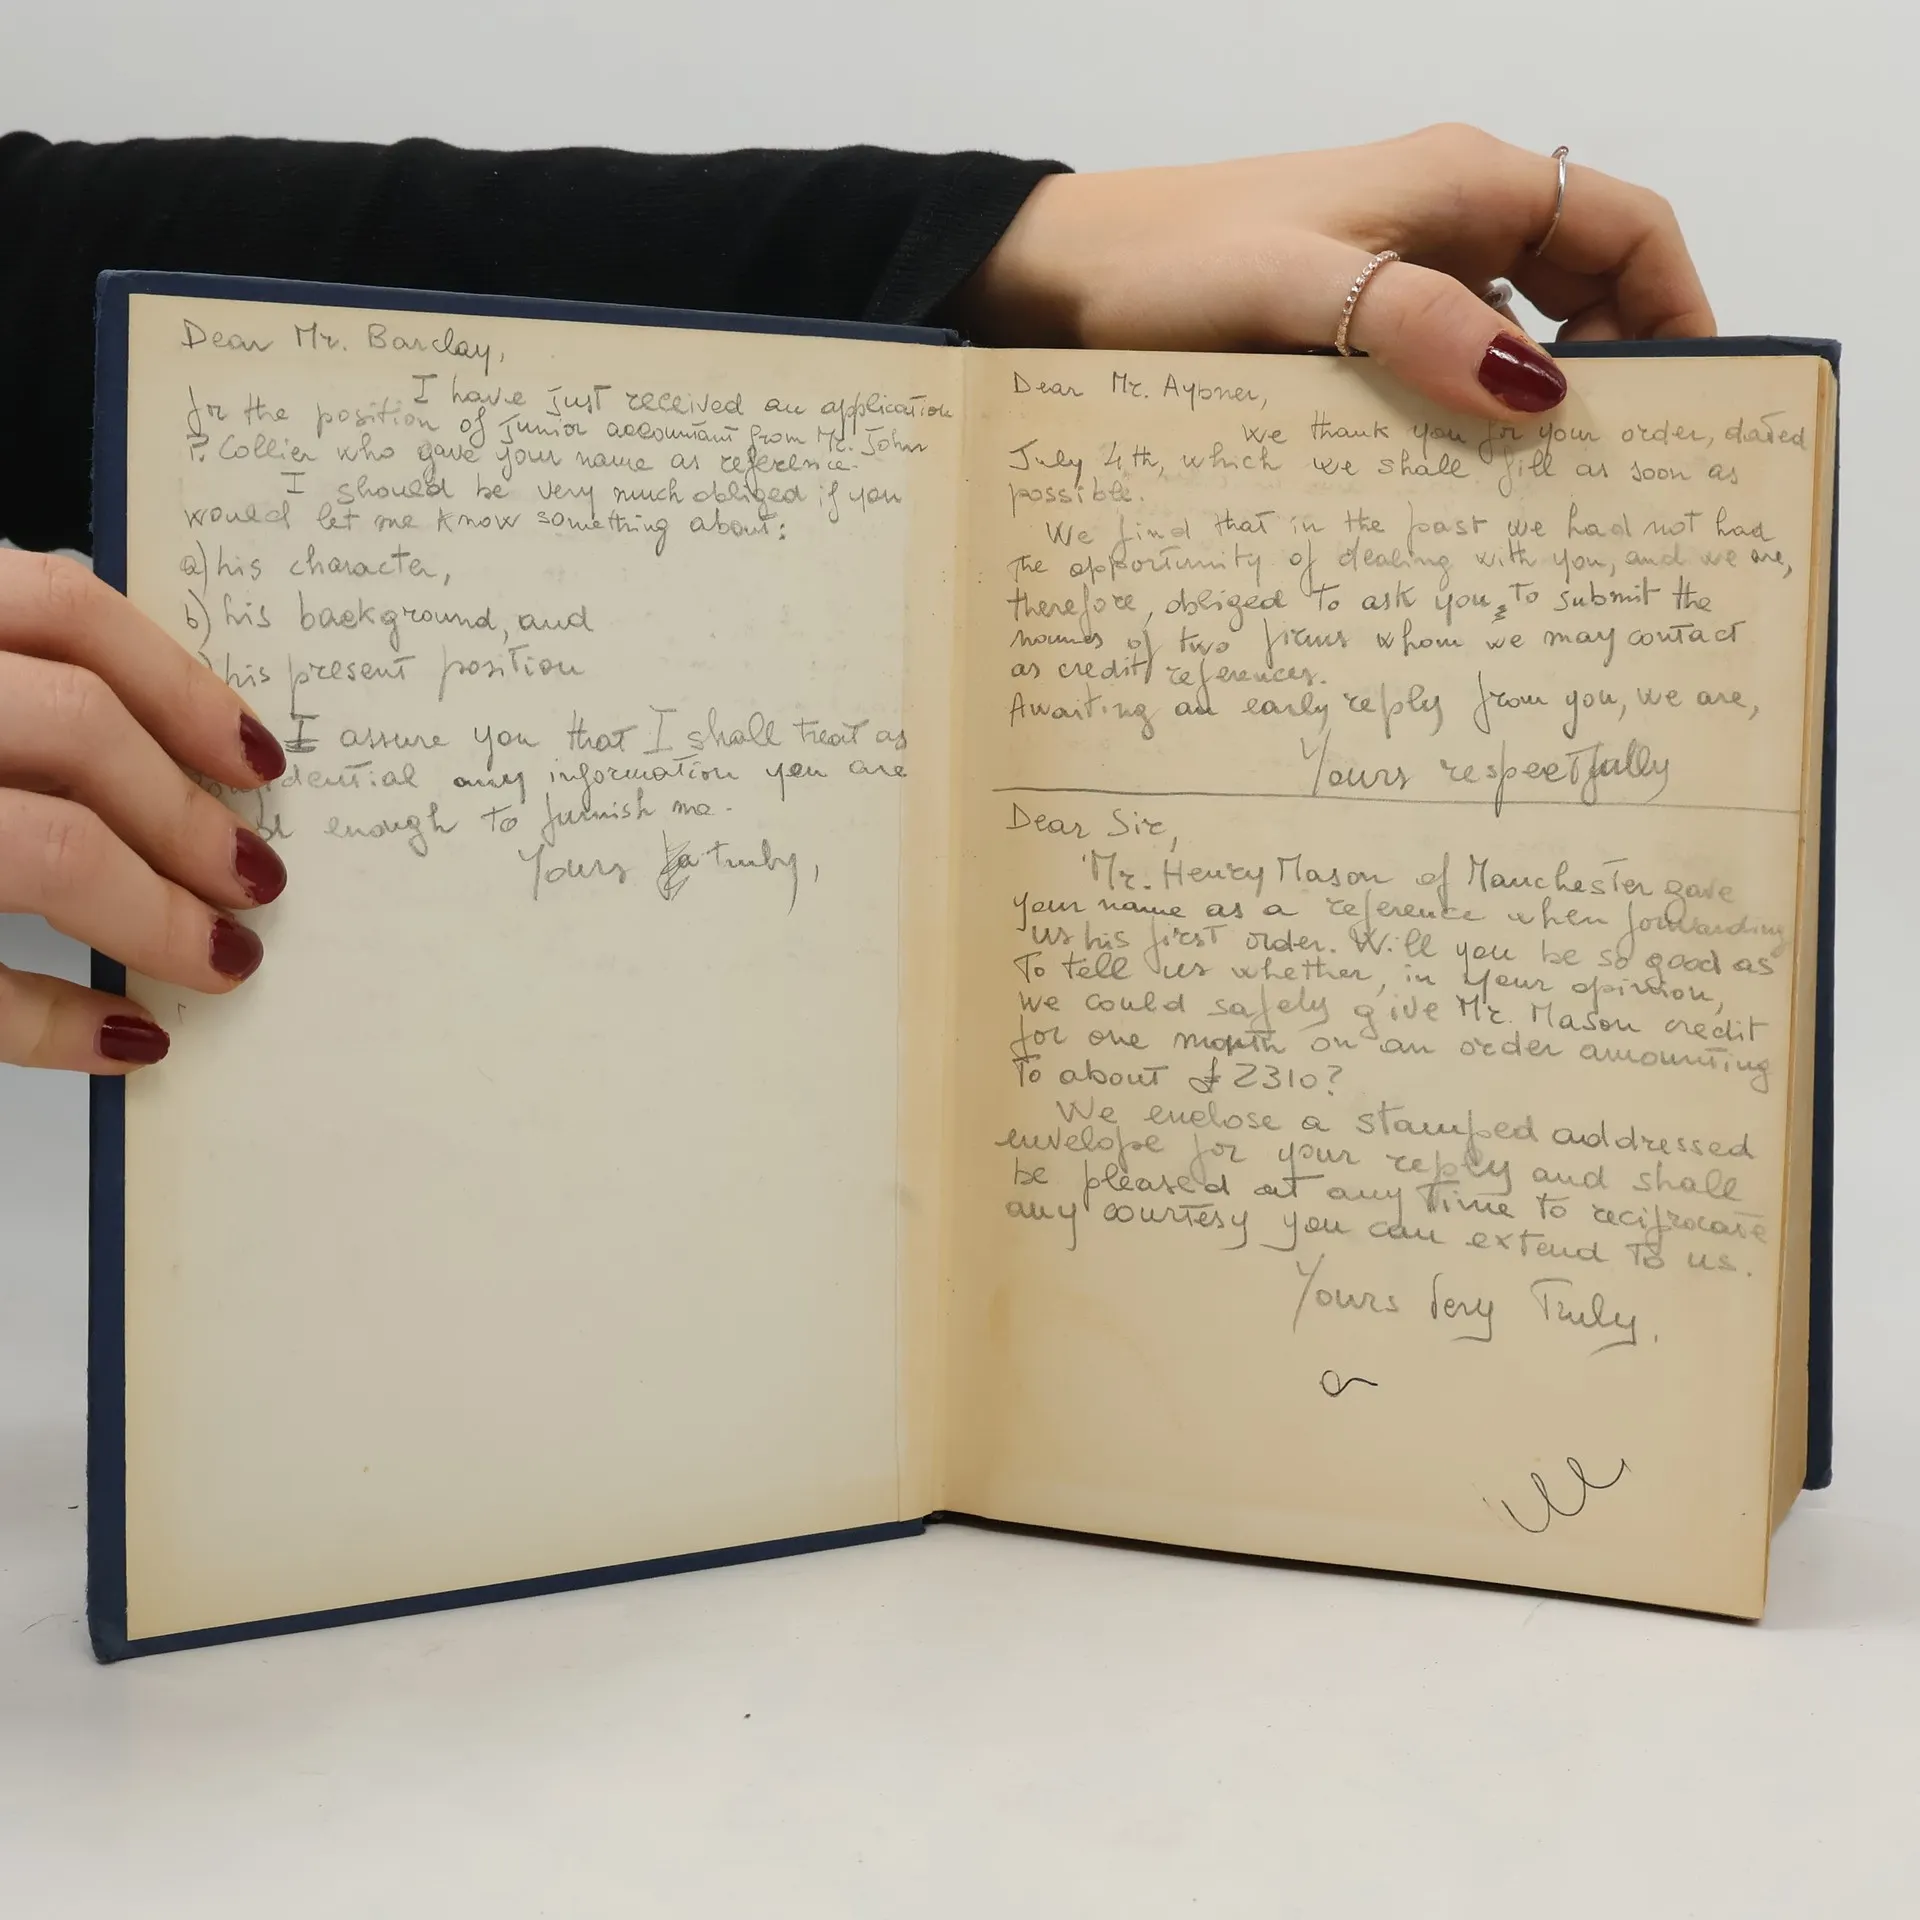 Dear Mr. Barclay,
I have just received an application
for the position of junior accountant from Mr. John
P. Collier who gave your name as reference.
I should be very much obliged if you
would let me know something about:
a) his character,
b) his background, and
) his present position
I assure you that I shall treat as
dential any information you are
enough to furnish me.
Yours truly,
Dear Mr. Aypner,
We thank you for your order, dated
July 4th, which we shall fill as soon as
possible.
We find that in the past we had not had
the opportunity of dealing with you, and we are,
therefore, obliged to ask you to submit the
names of two firms whom we may contact
as credit references.
Awaiting an early reply from you, we are,
Yours respectfully
Dear Sir,
Mr. Henry Mason of Manchester gave
your name as a reference when forwarding
us his first order. Will you be so good as
to tell us whether, in your opinion,
we could safely give Mr. Mason credit
for one month on an order amounting
to about £2310?
We enclose a stamped addressed
envelope for your reply and shall
be pleased at any time to reciprocate
any courtesy you can extend to us.
Yours Very Truly.